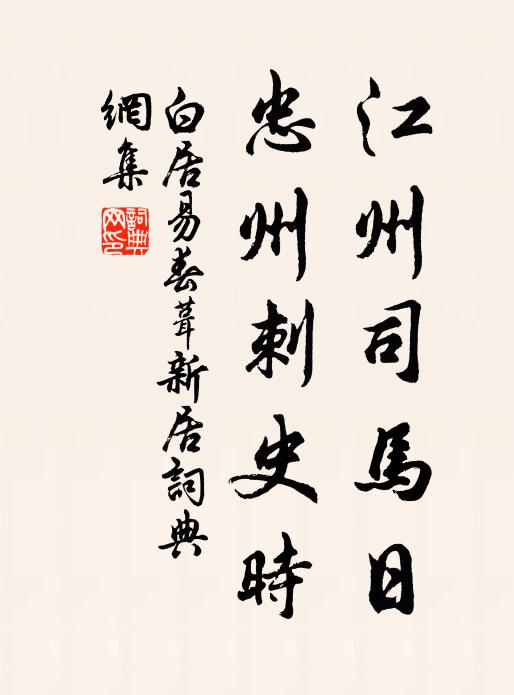 江州司馬日
忠州刺史時
白居易春葺新居詞典
網集
詞典
网印